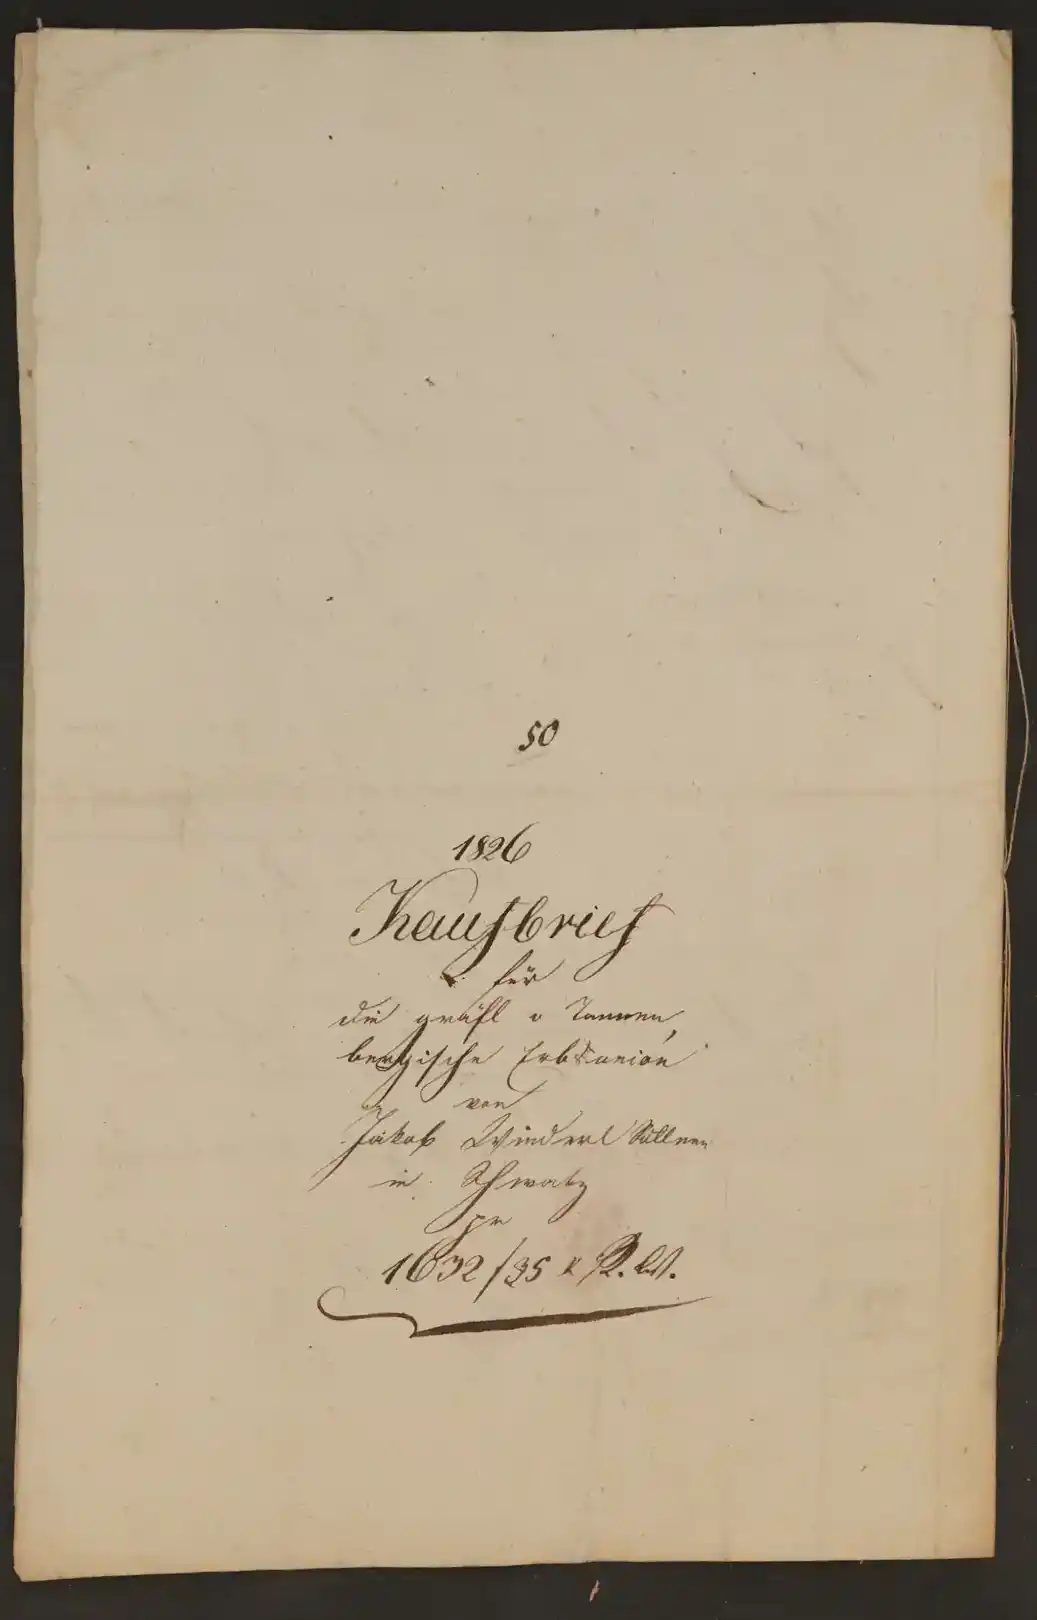 50
1826
Kaufbrief
für
die gräfl v Tannen,
bergische Erbsunion
von
Jakob Winderl Söllner
in Schwatz
pr
1632/35 x R. W.